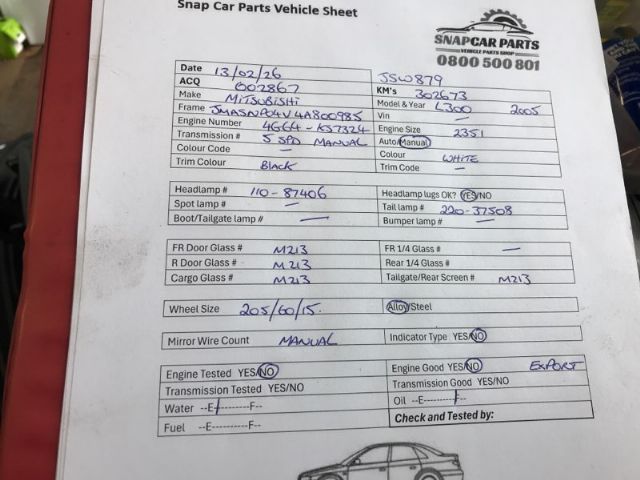 Snap Car Parts Vehicle Sheet
SNAPCAR PARTS
VEHICLE PARTS SHOP
0800 500 801
Date 13/02/26 JSW879
ACQ 002867 KM's 302673
Make MITSUBISHI Model & Year L300 2005
Frame JMASNP04V4A800985 Vin —
Engine Number 4G64-KS7324 Engine Size 2351
Transmission # 5 SPD MANUAL Auto/Manual
Colour Code — Colour WHITE
Trim Colour BLACK Trim Code —
Headlamp # 110-87406 Headlamp lugs OK? YES/NO
Spot lamp # — Tail lamp # 220-37508
Boot/Tailgate lamp # — Bumper lamp # —
FR Door Glass # M213 FR 1/4 Glass # —
R Door Glass # M213 Rear 1/4 Glass #
Cargo Glass # M213 Tailgate/Rear Screen # M213
Wheel Size 205/60/15. Alloy/Steel
Mirror Wire Count MANUAL Indicator Type YES/NO
Engine Tested YES/NO Engine Good YES/NO EXPORT
Transmission Tested YES/NO Transmission Good YES/NO
Water --E----------F-- Oil --E----------F--
Fuel --E----------F-- Check and Tested by: